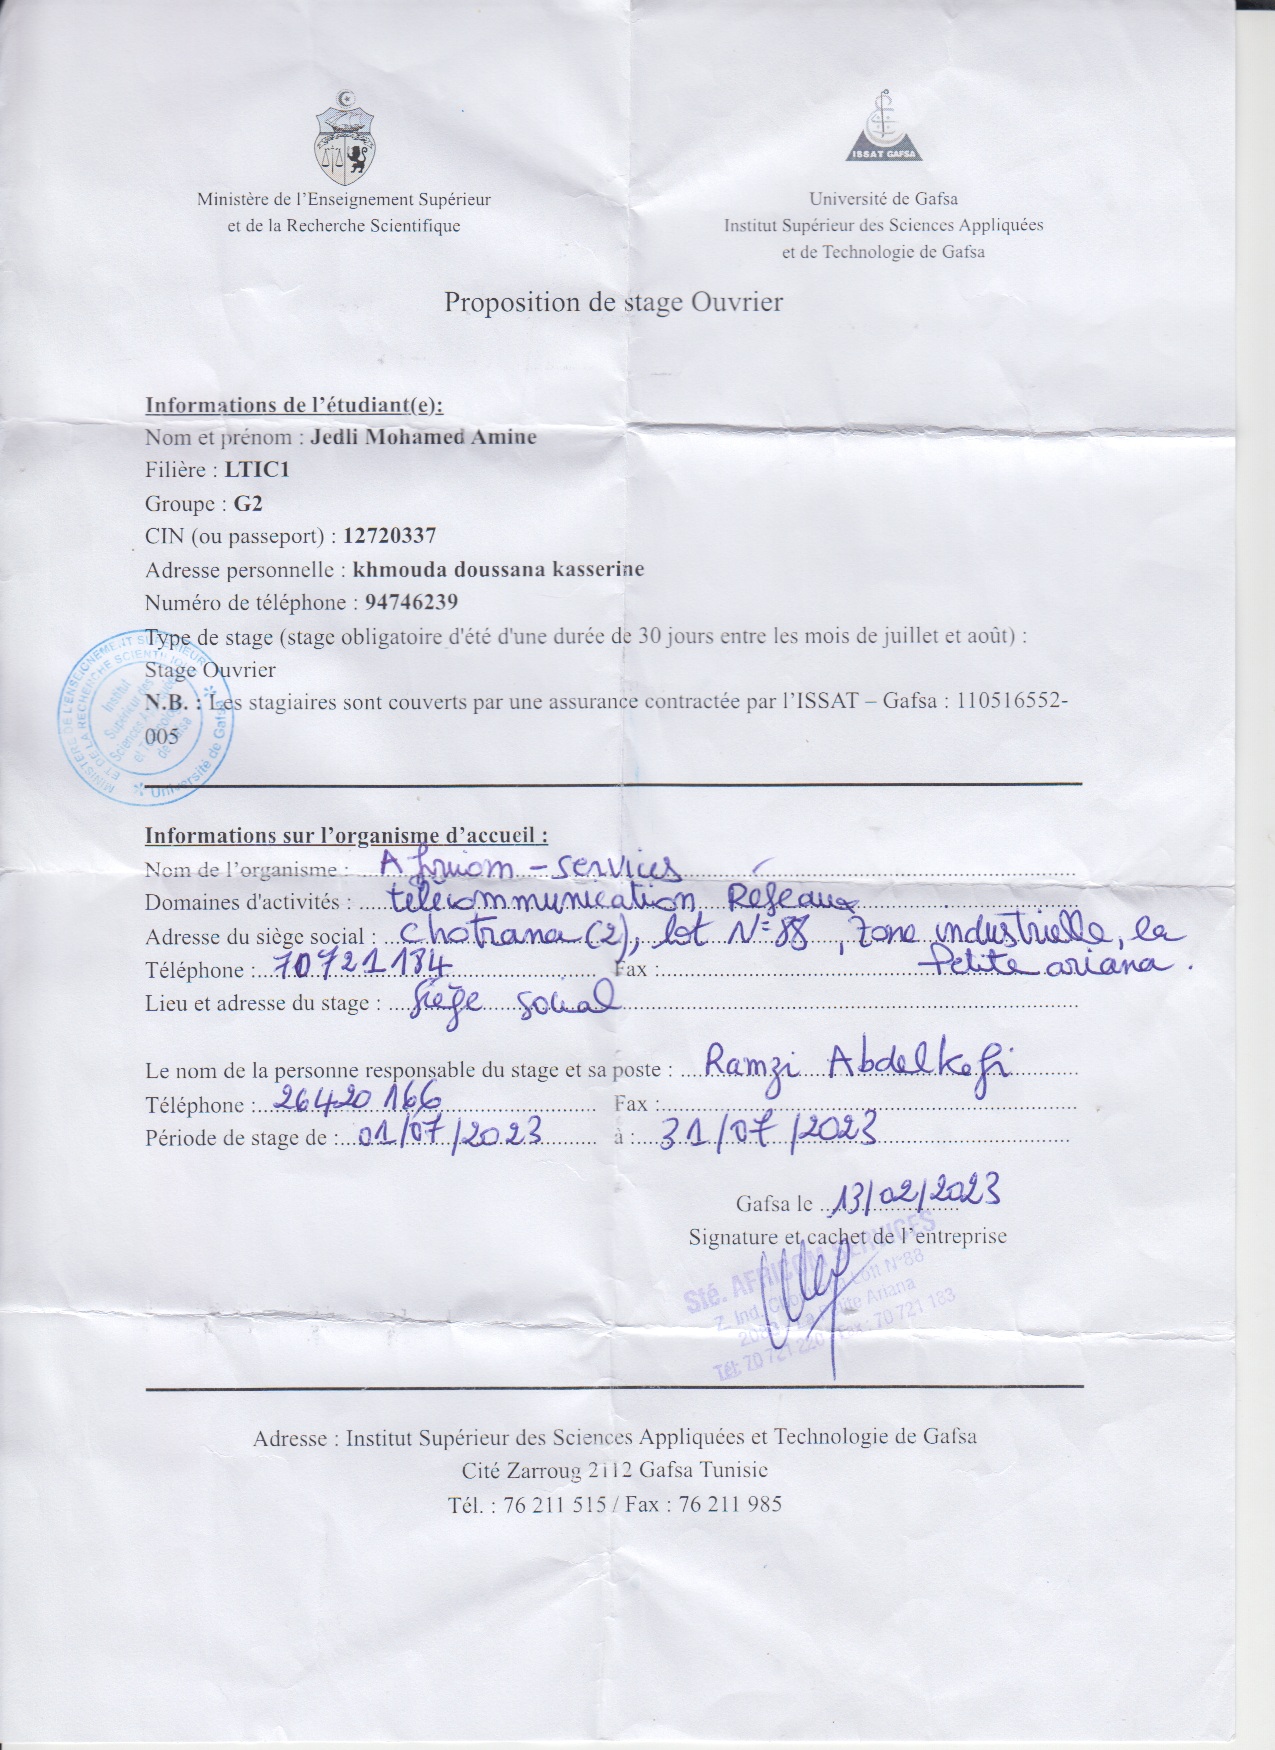 ISSAT GAFSA
Ministère de l'Enseignement Supérieur
et de la Recherche Scientifique
Université de Gafsa
Institut Supérieur des Sciences Appliquées
et de Technologie de Gafsa
Proposition de stage Ouvrier
Informations de l'étudiant(e):
Nom et prénom : Jedli Mohamed Amine
Filière : LTIC1
Groupe : G2
CIN (ou passeport) : 12720337
Adresse personnelle : khmouda doussana kasserine
Numéro de téléphone : 94746239
Type de stage (stage obligatoire d'été d'une durée de 30 jours entre les mois de juillet et août) :
Stage Ouvrier
N.B. : Les stagiaires sont couverts par une assurance contractée par l'ISSAT – Gafsa : 110516552-
005
MINISTERE DE L'ENSEIGNEMENT SUPERIEUR
ET DE LA RECHERCHE SCIENTIFIQUE
Institut
Supérieur des
Sciences Appliquées
et Technologie
de Gafsa
* Université de Gafsa *
Informations sur l'organisme d'accueil :
Nom de l'organisme : Africom - services
Domaines d'activités : télécommunication Reseaux
Adresse du siège social : chotrana (2), lot N° 88, zone industrielle, la
Petite ariana.
Téléphone : 70721184 Fax :
Lieu et adresse du stage : Siège social
Le nom de la personne responsable du stage et sa poste : Ramzi Abdelkefi
Téléphone : 26420166 Fax :
Période de stage de : 01/07/2023 à : 31/07/2023
Gafsa le 13/02/2023
Signature et cachet de l'entreprise
Sté. AFRICOM SERVICES
Z. Ind. Lott N°88
Petite Ariana
Tél: 70 721 220 Fax : 70 721 183
Adresse : Institut Supérieur des Sciences Appliquées et Technologie de Gafsa
Cité Zarroug 2112 Gafsa Tunisie
Tél. : 76 211 515 / Fax : 76 211 985